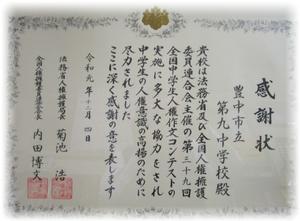 感謝状
豊中市立
第九中学校殿
貴校は法務省及び全国人権擁護
委員連合会主催の第三十九回
全国中学生人権作文コンテストの
実施に多大な協力をされ
中学生の人権意識の高揚のために
尽力されました
ここに深く感謝の意を表します
令和元年十二月四日
法務省人権擁護局長
菊池浩
全国人権擁護委員連合会長
内田博文